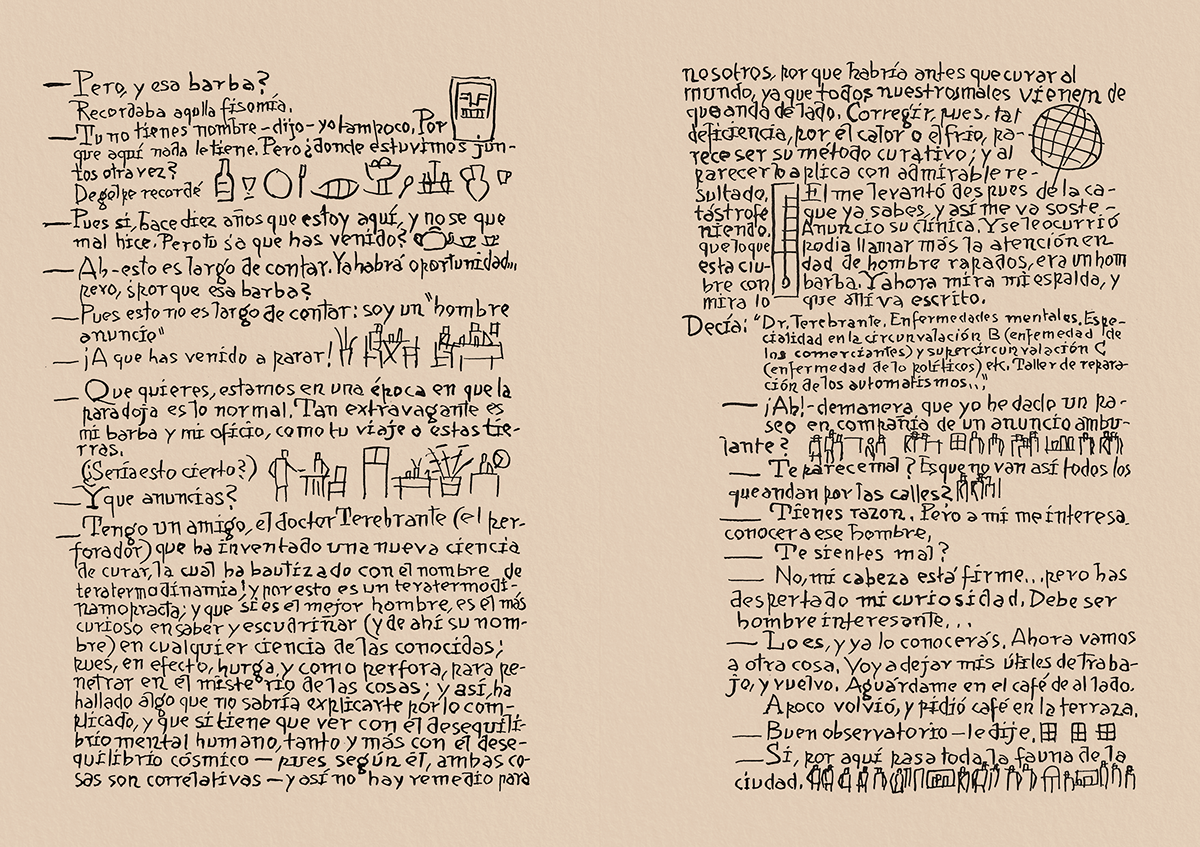 — Pero, y esa barba?
Recordaba aqulla fisomía.
— Tu no tienes nombre – dijo – yo tampoco. Por
que aquí nada le tiene. Pero ¿donde estuvimos jun-
tos otra vez?
De golpe recordé
— Pues si, hace diez años que estoy aquí, y no se que
mal hice. Pero tu ¿a que has venido?
— Ah – esto es largo de contar. Ya habrá oportunidad...
pero, ¿por que esa barba?
— Pues esto no es largo de contar: soy un "hombre
anuncio"
— ¡A que has venido a parar!
— Que quieres, estamos en una época en que la
paradoja es lo normal. Tan extravagante es
mi barba y mi oficio, como tu viaje a estas tie-
rras.
(¿Seria esto cierto?)
— Y que anuncias?
— Tengo un amigo, el doctor Terebrante (el per-
forador) que ha inventado una nueva ciencia
de curar, la cual ha bautizado con el nombre de
teratermodinamia! y por esto es un teratermodi-
namopracta; y que si es el mejor hombre, es el más
curioso en saber y escudriñar (y de ahí su nom-
bre) en cualquier ciencia de las conocidas;
pues, en efecto, hurga, y como perfora, para pe-
netrar en el misterio de las cosas; y así, ha
hallado algo que no sabría explicarte por lo com-
plicado, y que sí tiene que ver con el desequili-
brio mental humano, tanto y más con el dese-
quilibrio cósmico — pues según él, ambas co-
sas son correlativas — y así no hay remedio para
nosotros, por que habría antes que curar al
mundo, ya que todos nuestros males vienen de
que anda de lado. Corregir, pues, tal
deficiencia, por el calor o el frio, pa-
rece ser su método curativo; y al
parecer lo aplica con admirable re-
sultado. El me levantó despues de la ca-
tástrofe que ya sabes, y asi me va soste-
niendo. Anuncio su clínica. Y se le ocurrió
que lo que podia llamar más la atención en
esta ciu- dad de hombre rapados, era un hom
bre con barba. Y ahora mira mi espalda, y
mira lo que allí va escrito.
Decía: "Dr. Terebrante. Enfermedades mentales. Espe-
cialidad en la circunvalación B (enfemedad de
los comerciantes) y supercircunvalación C
(enfermedad de lo políticos) etc. Taller de repara-
ción de los automatismos..."
— ¡Ah! – demanera que yo he dado un pa-
seo en compañia de un anuncio ambu-
lante?
— Te parece mal? Es que no van así todos los
que andan por las calles?
— Tienes razon. Pero a mi me interesa
conocer a ese hombre.
— Te sientes mal?
— No, mi cabeza está firme... pero has
despertado mi curiosidad. Debe ser
hombre interesante...
— Lo es, y ya lo conocerás. Ahora vamos
a otra cosa. Voy a dejar mis útiles de traba-
jo, y vuelvo. Aguárdame en el café de al lado.
A poco volvió, y pidió café en la terraza.
— Buen observatorio – le dije.
— Sí, por aquí pasa toda la fauna de la
ciudad.